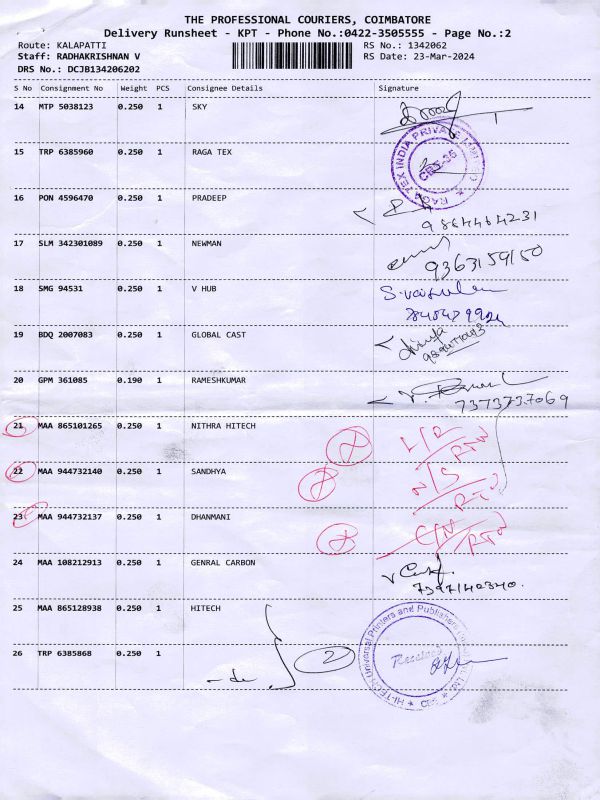 THE PROFESSIONAL COURIERS, COIMBATORE
Delivery Runsheet - KPT - Phone No.:0422-3505555 - Page No.:2
Route: KALAPATTI RS No.: 1342062
Staff: RADHAKRISHNAN V RS Date: 23-Mar-2024
DRS No.: DCJB134206202
S No Consignment No Weight PCS Consignee Details Signature
14 MTP 5038123 0.250 1 SKY
15 TRP 6385960 0.250 1 RAGA TEX
RAGA TEX INDIA PRIVATE LIMITED ★ CBE-35
16 PON 4596470 0.250 1 PRADEEP
9864464231
17 SLM 342301089 0.250 1 NEWMAN
9363159150
18 SMG 94531 0.250 1 V HUB
19 BDQ 2007083 0.250 1 GLOBAL CAST
20 GPM 361085 0.190 1 RAMESHKUMAR
7373737069
21 MAA 865101265 0.250 1 NITHRA HITECH
L/R
22 MAA 944732140 0.250 1 SANDHYA
N/S
RTO
23 MAA 944732137 0.250 1 DHANMANI
24 MAA 108212913 0.250 1 GENRAL CARBON
7397140340.
25 MAA 865128938 0.250 1 HITECH
26 TRP 6385868 0.250 1
- do 2
HI-TECH Universal Printers and Publishers
Received
CBE